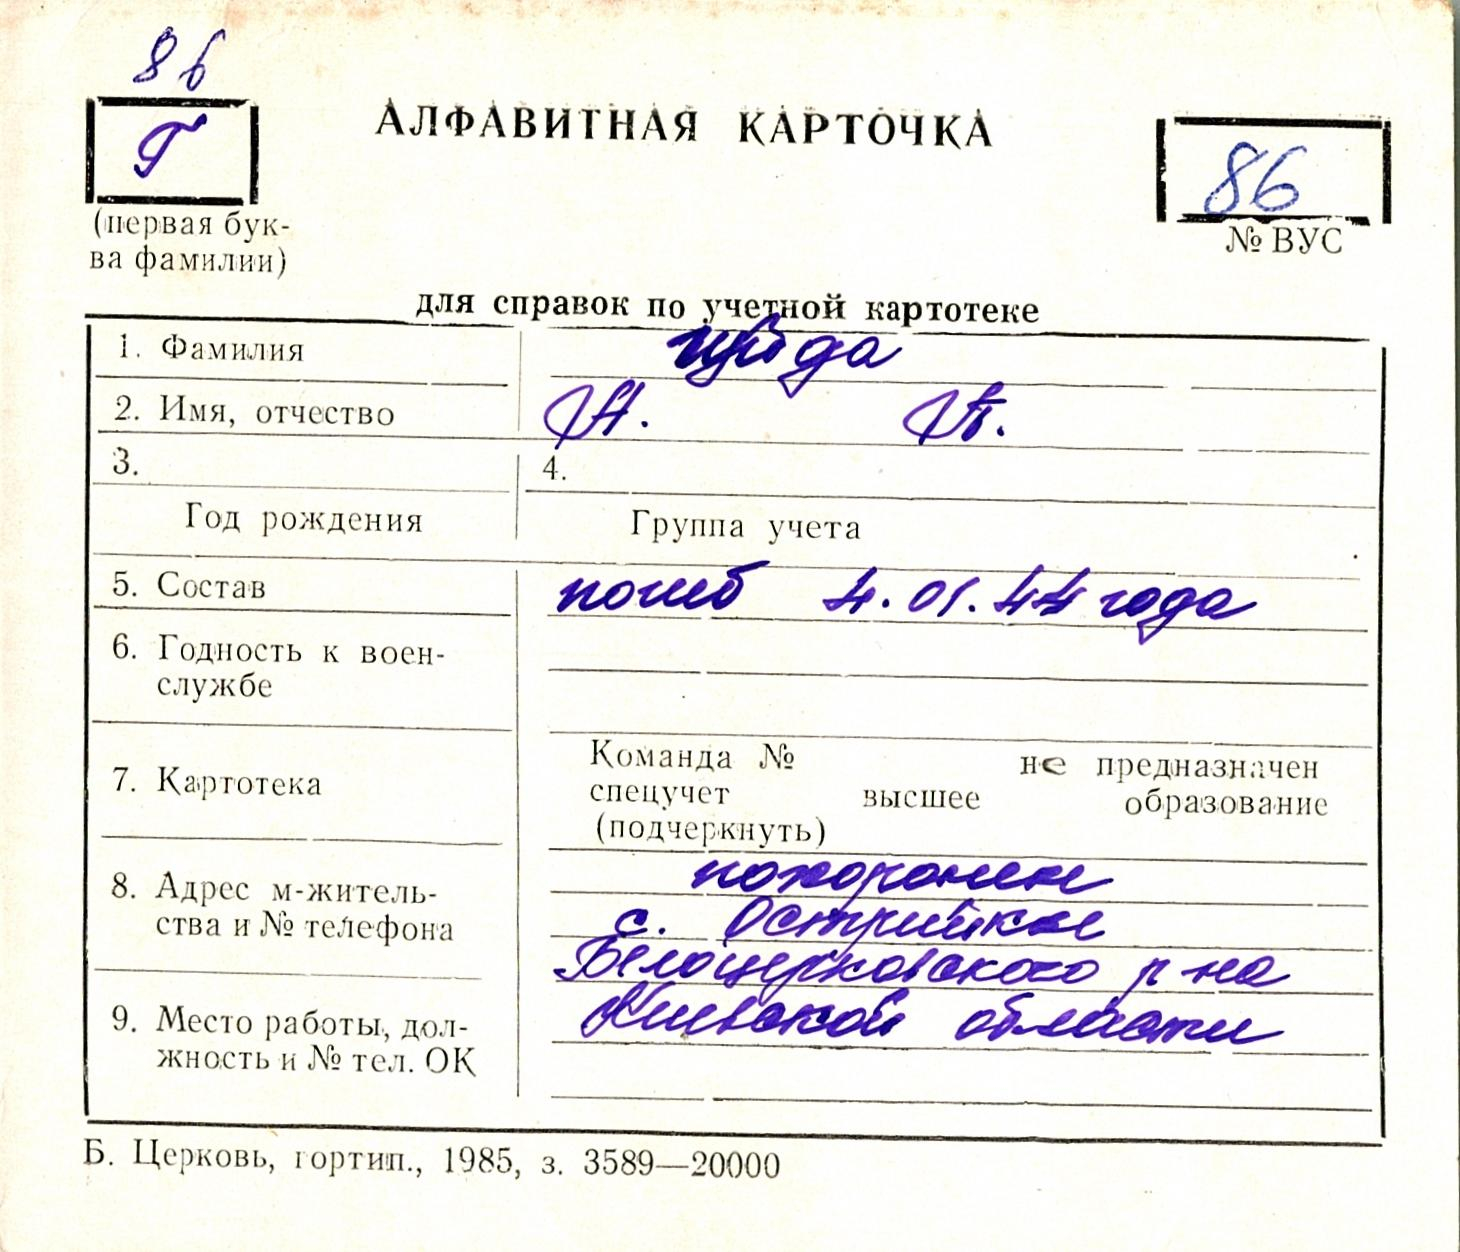 86
Г
АЛФАВИТНАЯ КАРТОЧКА
86
(первая бук-
ва фамилии)
№ ВУС
для справок по учетной картотеке
1. Фамилия
2. Имя, отчество А. А.
3. 4.
Год рождения Группа учета
5. Состав погиб 4.01.44 года
6. Годность к воен-
службе
7. Картотека
Команда № не предназначен
спецучет высшее образование
(подчеркнуть)
8. Адрес м-житель-
ства и № телефона
похоронен
с. Острийки
Белоцерковского р-на
9. Место работы, дол-
жность и № тел. ОК
Киевской области
Б. Церковь, гортип., 1985, з. 3589—20000